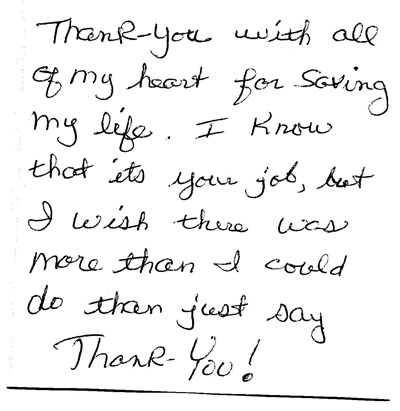 Thank-You with all
of my heart for Saving
my life. I Know
that its your job, but
I wish there was
more than I could
do than just say
Thank-You!